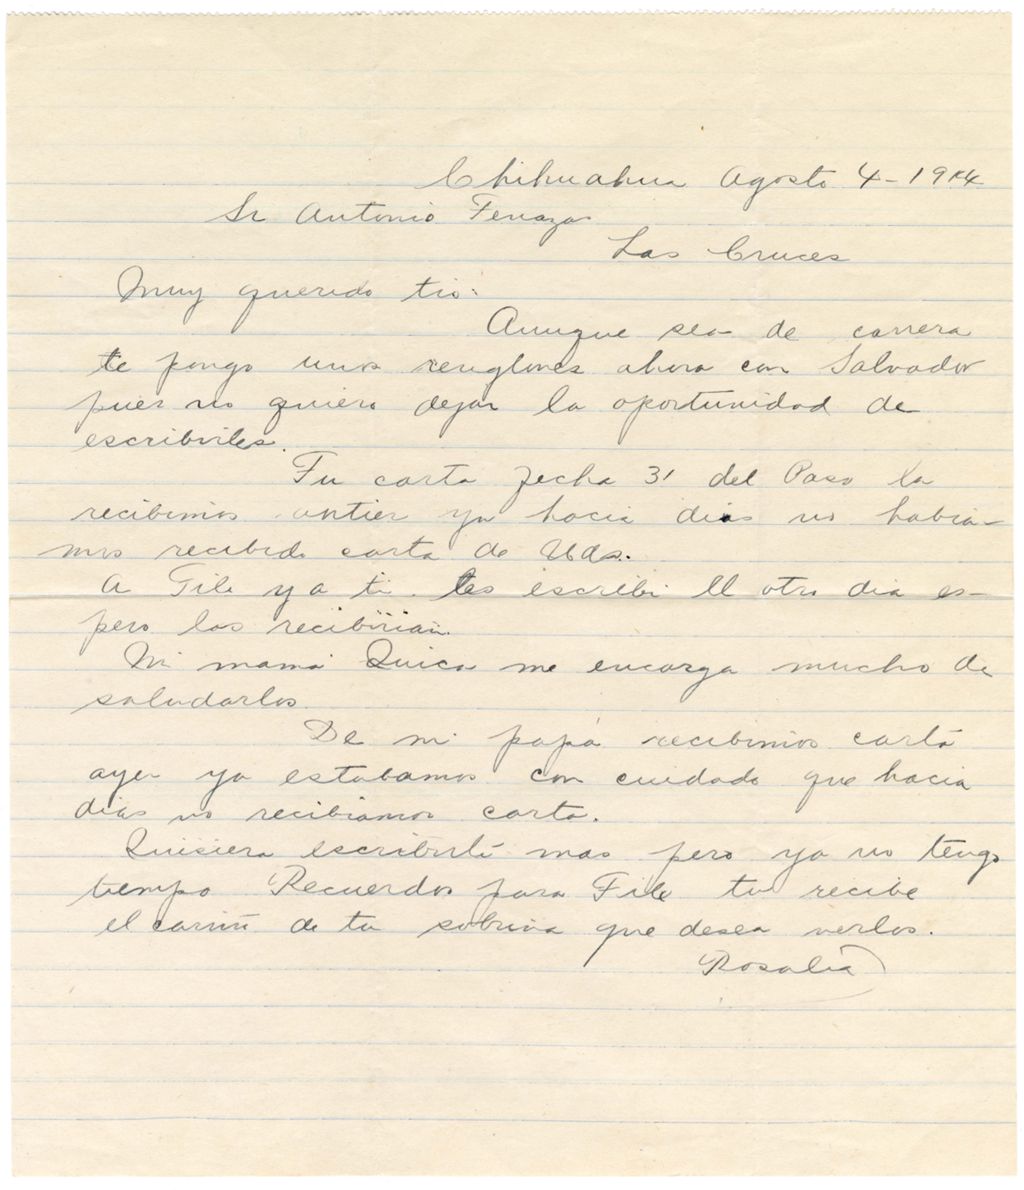 Chihuahua Agosto 4-1914
Sr Antonio Terrazas
Las Cruces
Muy querido tio:
Aunque sea de carrera
te pongo unos renglones ahora con Salvador
pues no quiero dejar la oportunidad de
escribirles.
Tu carta fecha 31 del Paso la
recibimos antier ya hacia dias no habia-
mos recibido carta de Uds.
A File y a ti les escribi el otro dia es-
pero las recibirian.
Mi mamá Quica me encarga mucho de
saludarlos.
De mi papá recibimos carta
ayer ya estabamos con cuidado que hacia
dias no recibiamos carta.
Quisiera escribirte mas pero ya no tengo
tiempo Recuerdos para File tu recibe
el cariño de tu sobrina que desea verlos.
Rosalía